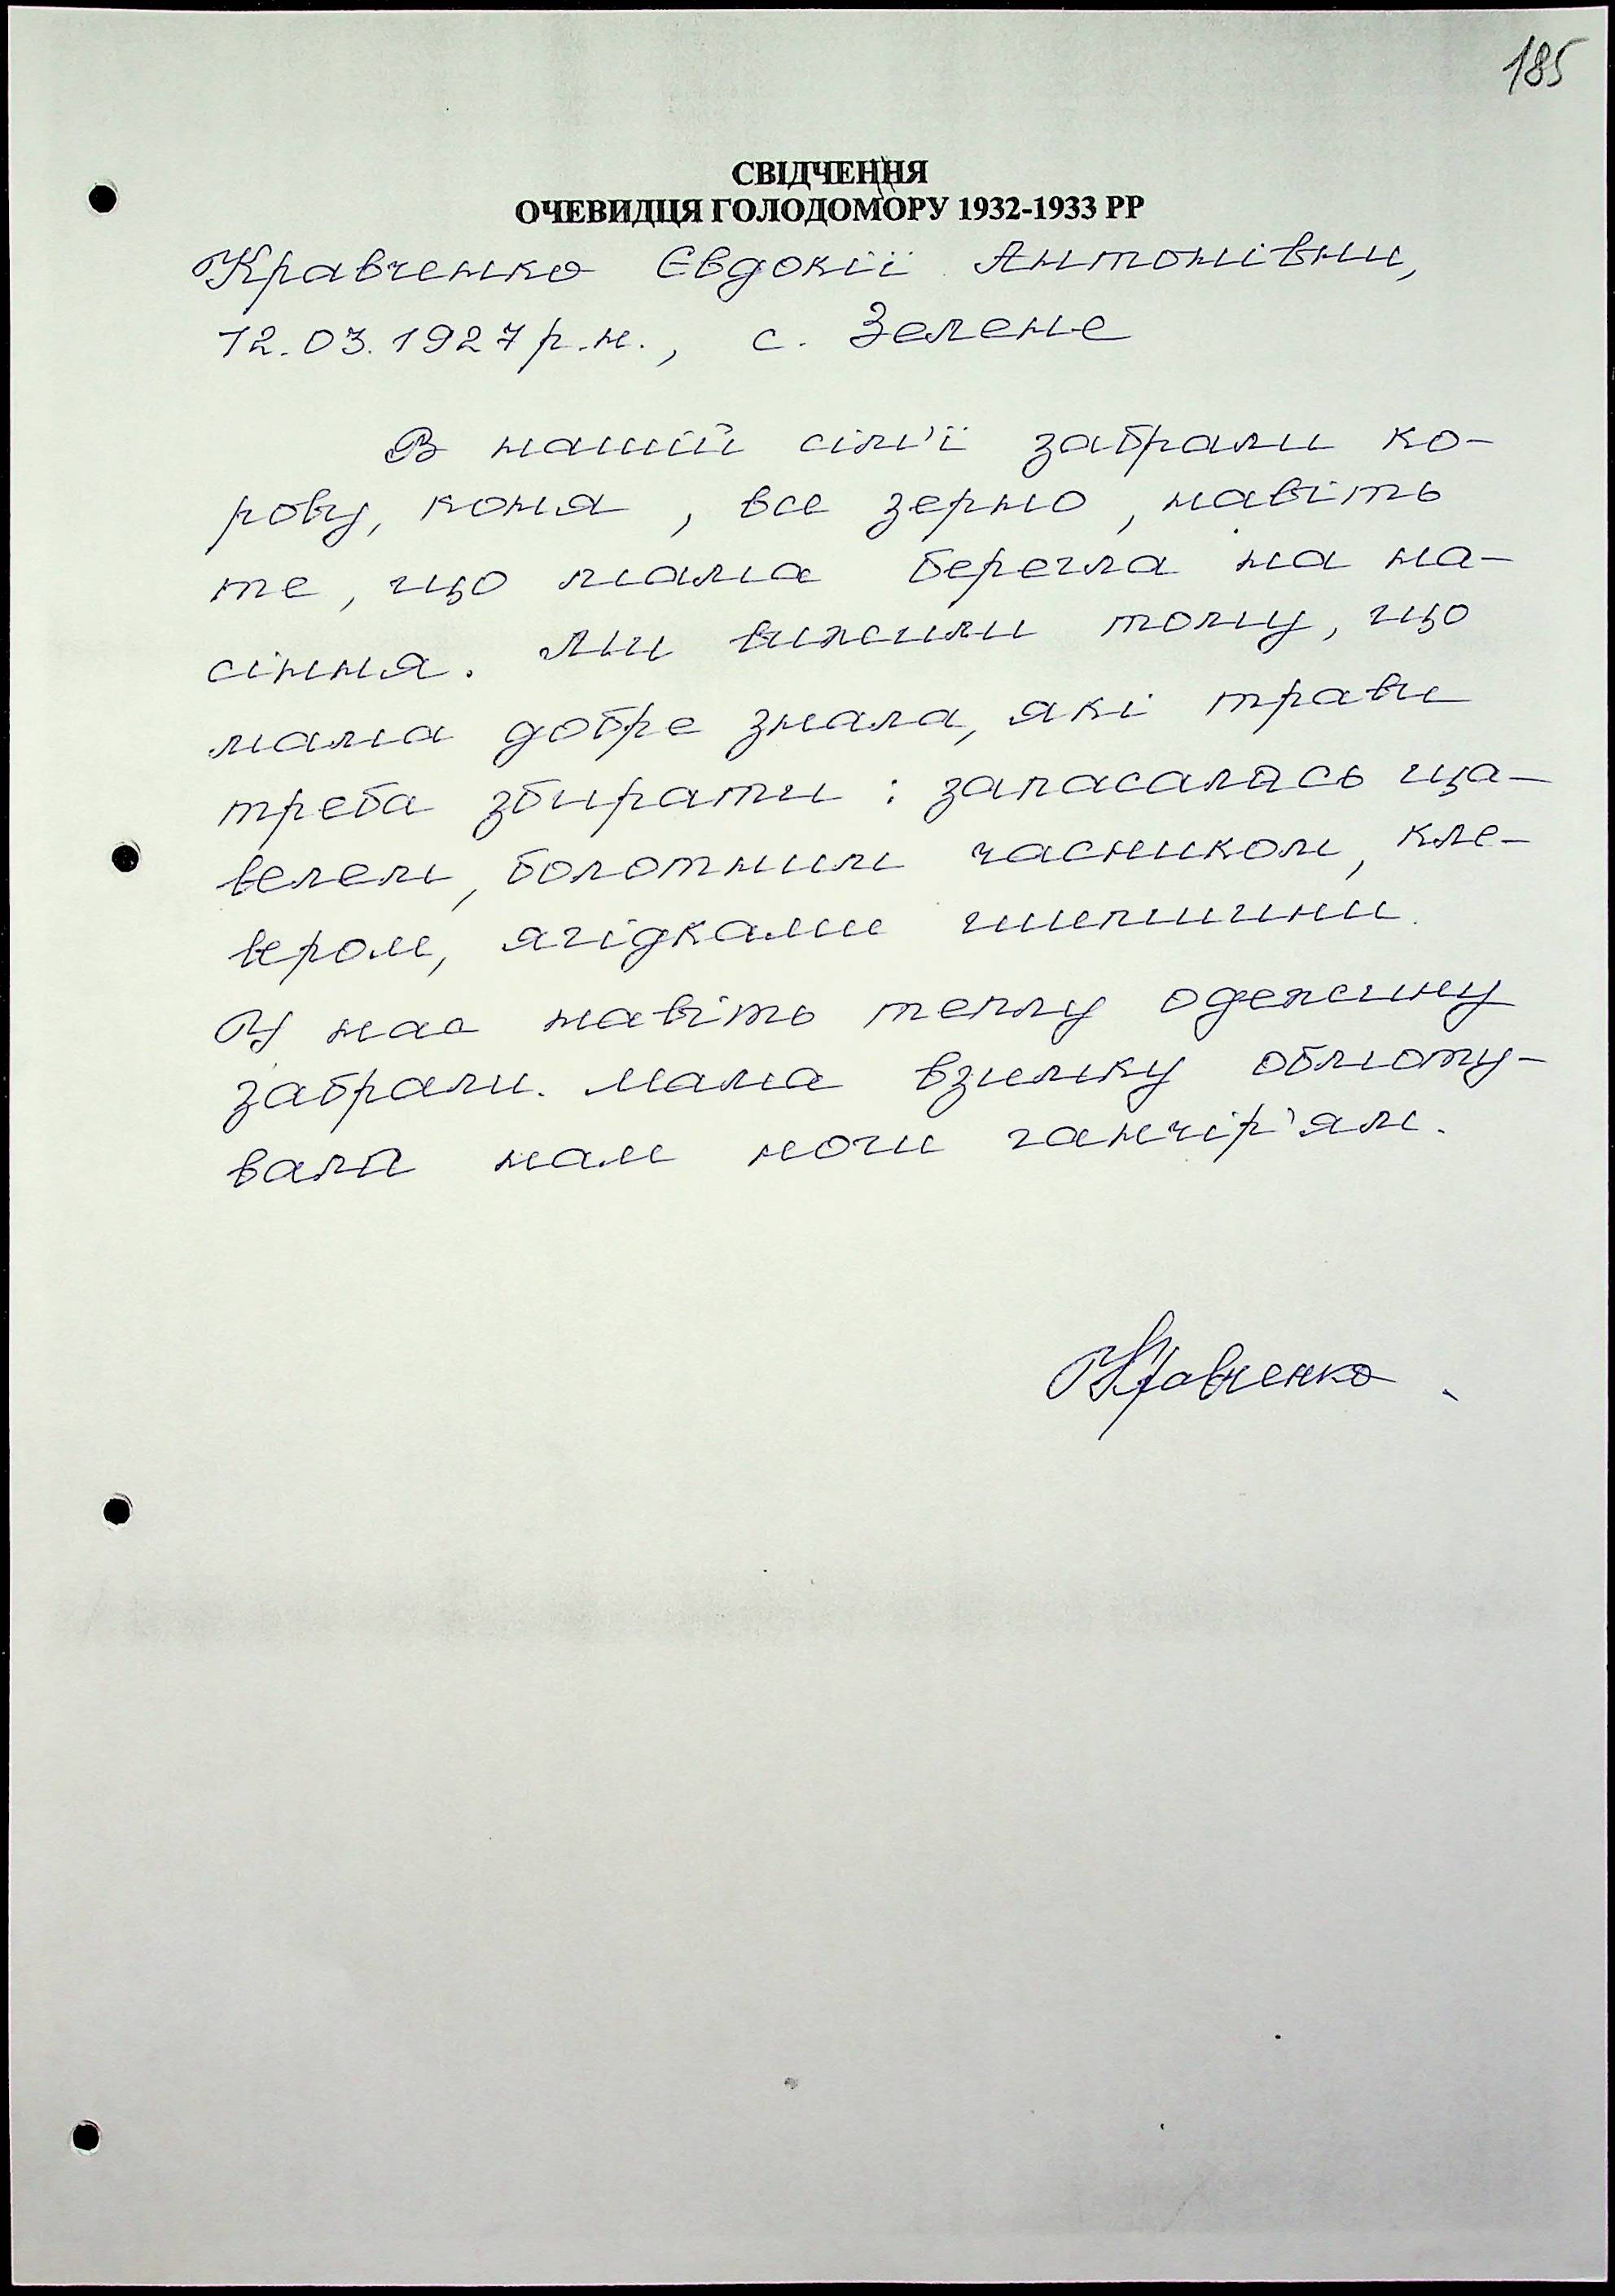 185
СВІДЧЕННЯ
ОЧЕВИДЦЯ ГОЛОДОМОРУ 1932-1933 РР
Кравченко Євдокії Антонівни,
12.03.1927 р.н., с. Зелене
В нашій сім'ї забрали ко-
рову, коня, все зерно, навіть
те, що мама берегла на на-
сіння. Ми вижили тому, що
мама добре знала, які трави
треба збирати: запасалась ща-
велем, болотним часником, кле-
вером, ягідками шипшини.
У нас навіть теплу одежину
забрали. Мама взимку обмоту-
вала нам ноги ганчір'ям.
Кравченко